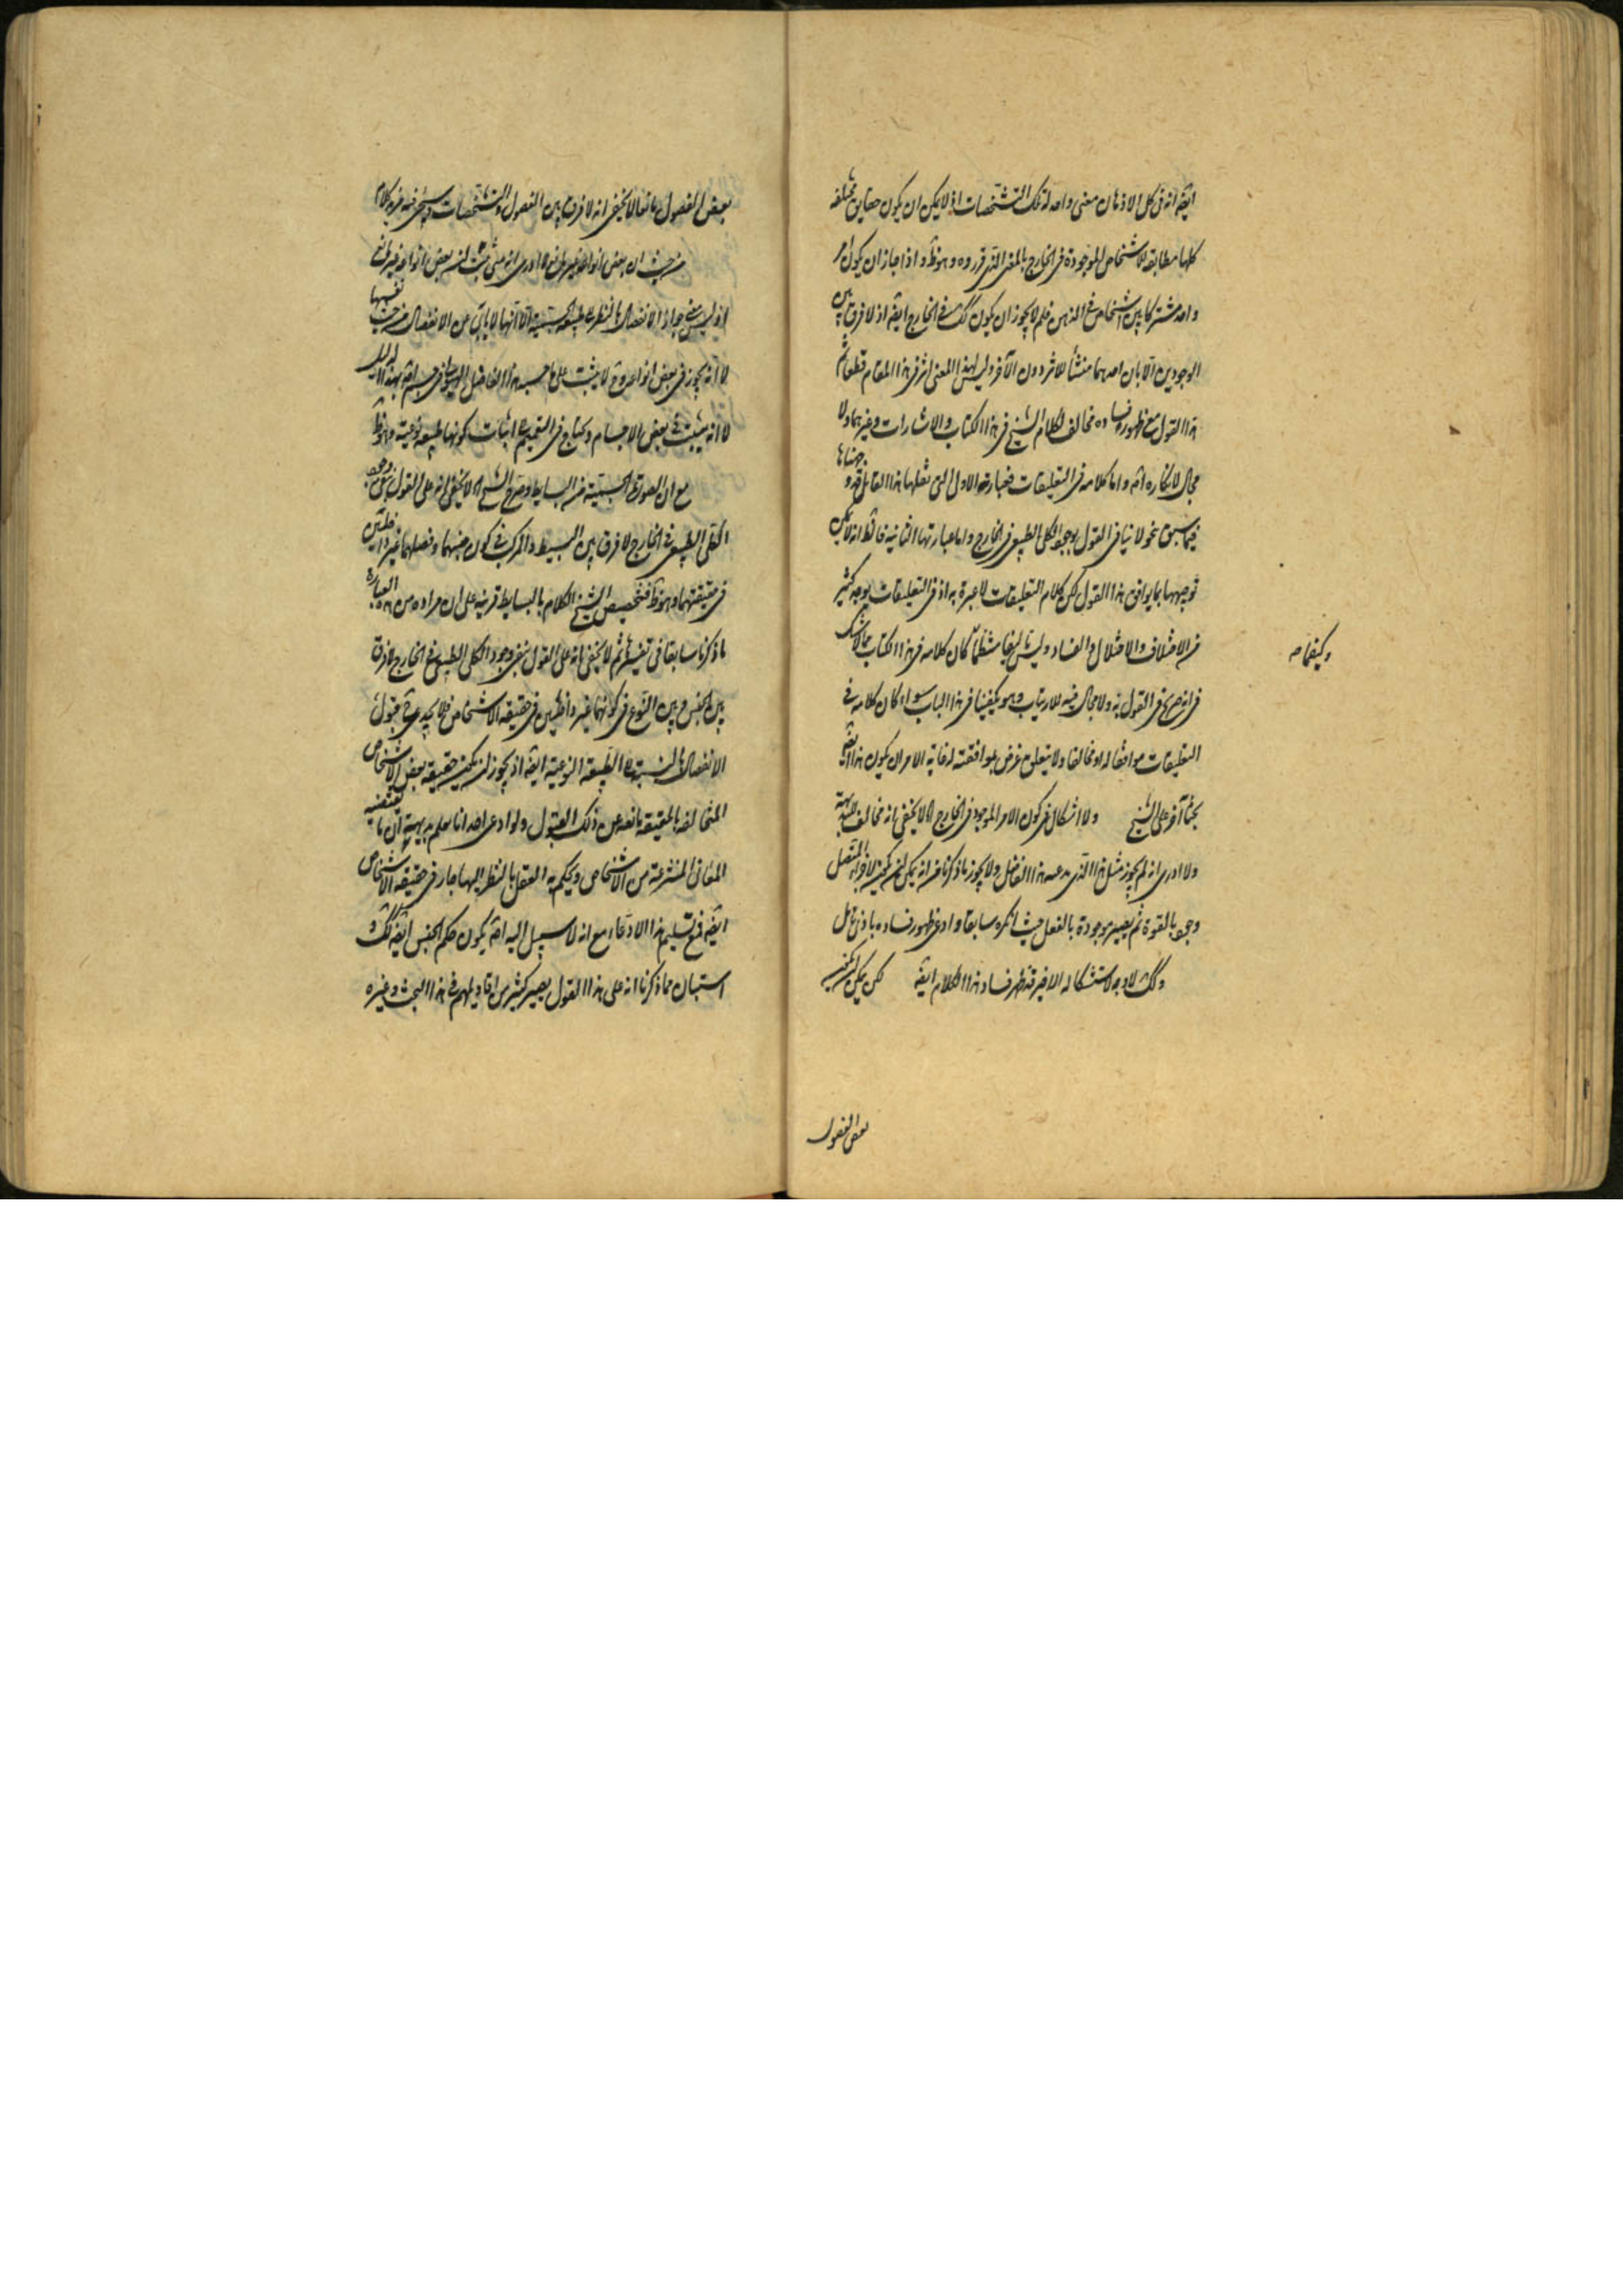 ايضا انه في كل الاذهان معنى واحد لتلك التشخصات اذ لا يمكن ان يكون حقايق مختلفة
كلها مطابقة للاشخاص الموجودة في الخارج بالمعنى الذي قرروه وهو ظ واذا جاز ان يكون امر
واحد مشتركا بين اشخاص في الذهن فلم لا يجوز ان يكون كك في الخارج ايضا اذ لا فرق بين
الوجودين الا بان احدهما منشأ للاثر دون الآخر وليس لهذا المعنى اثر في هذا المقام قطعا ثم
هذا القول مع ظهور فساده مخالف لكلام الشيخ في هذا الكتاب والاشارات وغيرهما ولا
مجال لانكاره اصلا واما كلامه في التعليقات فعبارته الاولى التي نقلها هذا القائل قد وجهناها
فيما سبق بنحو لا ينافي القول بوجود الكلي الطبيعي في الخارج واما عبارتها الثانية فالظ انه لا يمكن
توجيهها بما يوافق هذا القول لكن كلام التعليقات لا عبرة به اذ في التعليقات يوجد كثير
من الاختلاف والاختلال والفساد وليس تأليفا منتظما كان كلامه في هذا الكتاب مما لا شك
في انه صريح في القول به ولا مجال فيه للارتياب وهو يكفينا في هذا الباب سواء كان كلامه في
التعليقات موافقا له او مخالفا ولا يتعلق غرض بموافقته له غاية الامر ان يكون هذا ايضا
بحثا آخر على الشيخ ولا اشكال في كون الامر الموجود في الخارج الا لا يخفى انه مخالف للبديهة
ولا ادري انه لم يجوز مثل هذا الذي يدعيه هذا الفاضل ولا يجوز ما ذكرنا من انه يمكن ان يكون لاجزاء المتصل
وجود بالقوة ثم يصير موجودة بالفعل حيث انكره سابقا وادعى ظهور فساده باذن تأمل
وكك لا وجه لاستشكاله الاخير فظهر فساد هذا الكلام ايضا لكن يمكن ان يكون
وكيفما ص
بعض الفصول
بعض الفصول مانعا لا يخفى انه لا فرق بين الفصول والتشخصات وسيجيء فيه مزيد كلام
من حيث ان بعض انواعه غير مانع لا ادري انه متى ثبت ان بعض انواعه غير مانع
اذ ليس جواز الانفصال بالنظر الى طبيعة الجسمية الا انها لا يأبى عن الانفصال من حيث نفسها
لا انه يجوز في بعض انواعه وح لا يثبت على ما حسبه هذا الفاضل الهيولى في جسم اصلا بهذا الدليل
لا انه يثبت في بعض الاجسام ويحتاج في التعميم الى اثبات كونها طبيعة نوعية وهو ظ
مع ان الصورة الجسمية من البسايط وصرح الشيخ الا لا يخفى انه على القول بنفي وجود
الكلي الطبيعي في الخارج لا فرق بين البسيط والمركب في كون جنسهما وفصلهما غير داخلين
في حقيقتهما وهو ظ فتخصيص الشيخ الكلام بالبسايط قرينة على ان مراده من هذه العبارة
ما ذكرنا سابقا في تفسيرها ثم لا يخفى انه على القول بنفي وجود الكلي الطبيعي في الخارج لا فرق
بين الجنس وبين النوع في كونهما غير داخلين في حقيقة الاشخاص فلا يجدي ح قبول
الانفصال بالنسبة الى الطبيعة النوعية ايضا اذ يجوز ان يكون حقيقة بعض الاشخاص
المخالفة بالحقيقة مانعة عن ذلك القبول ولو ادعى احد انا نعلم بديهة ان ما تقتضيه
المعاني المنتزعة من الاشخاص ويحكم به العقل بالنظر اليها جار في حقيقة الاشخاص
ايضا فمع تسليم هذا الادعاء مع انه لا سبيل اليه اصلا يكون حكم الجنس ايضا كك وقد
استبان مما ذكرنا انه على هذا القول يصير كثير من اقاويلهم في هذا البحث وغيره